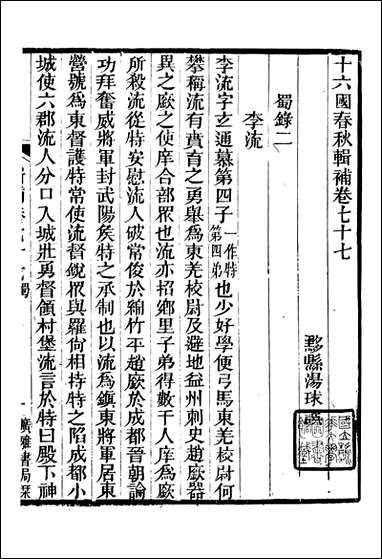 十六國春秋輯補卷七十七
黟縣湯球
蜀錄二
李流
李流字玄通慕第四子一作特第四弟也少好學便弓馬東羌校尉何
攀稱流有賁育之勇舉為東羌校尉及避地益州刺史趙廞器
異之廞之使庠合部眾也流亦招鄉里子弟得數千人庠為廞
所殺流從特安慰流人破常俊於綿竹平趙廞於成都晉朝論
功拜奮威將軍封武陽矦特之承制也以流為鎮東將軍居東
營號為東督護特常使流督銳眾與羅尚相持特之陷成都小
城使六郡流人分口入城壯勇督領村堡流言於特曰殿下神
一
廣雅書局栞